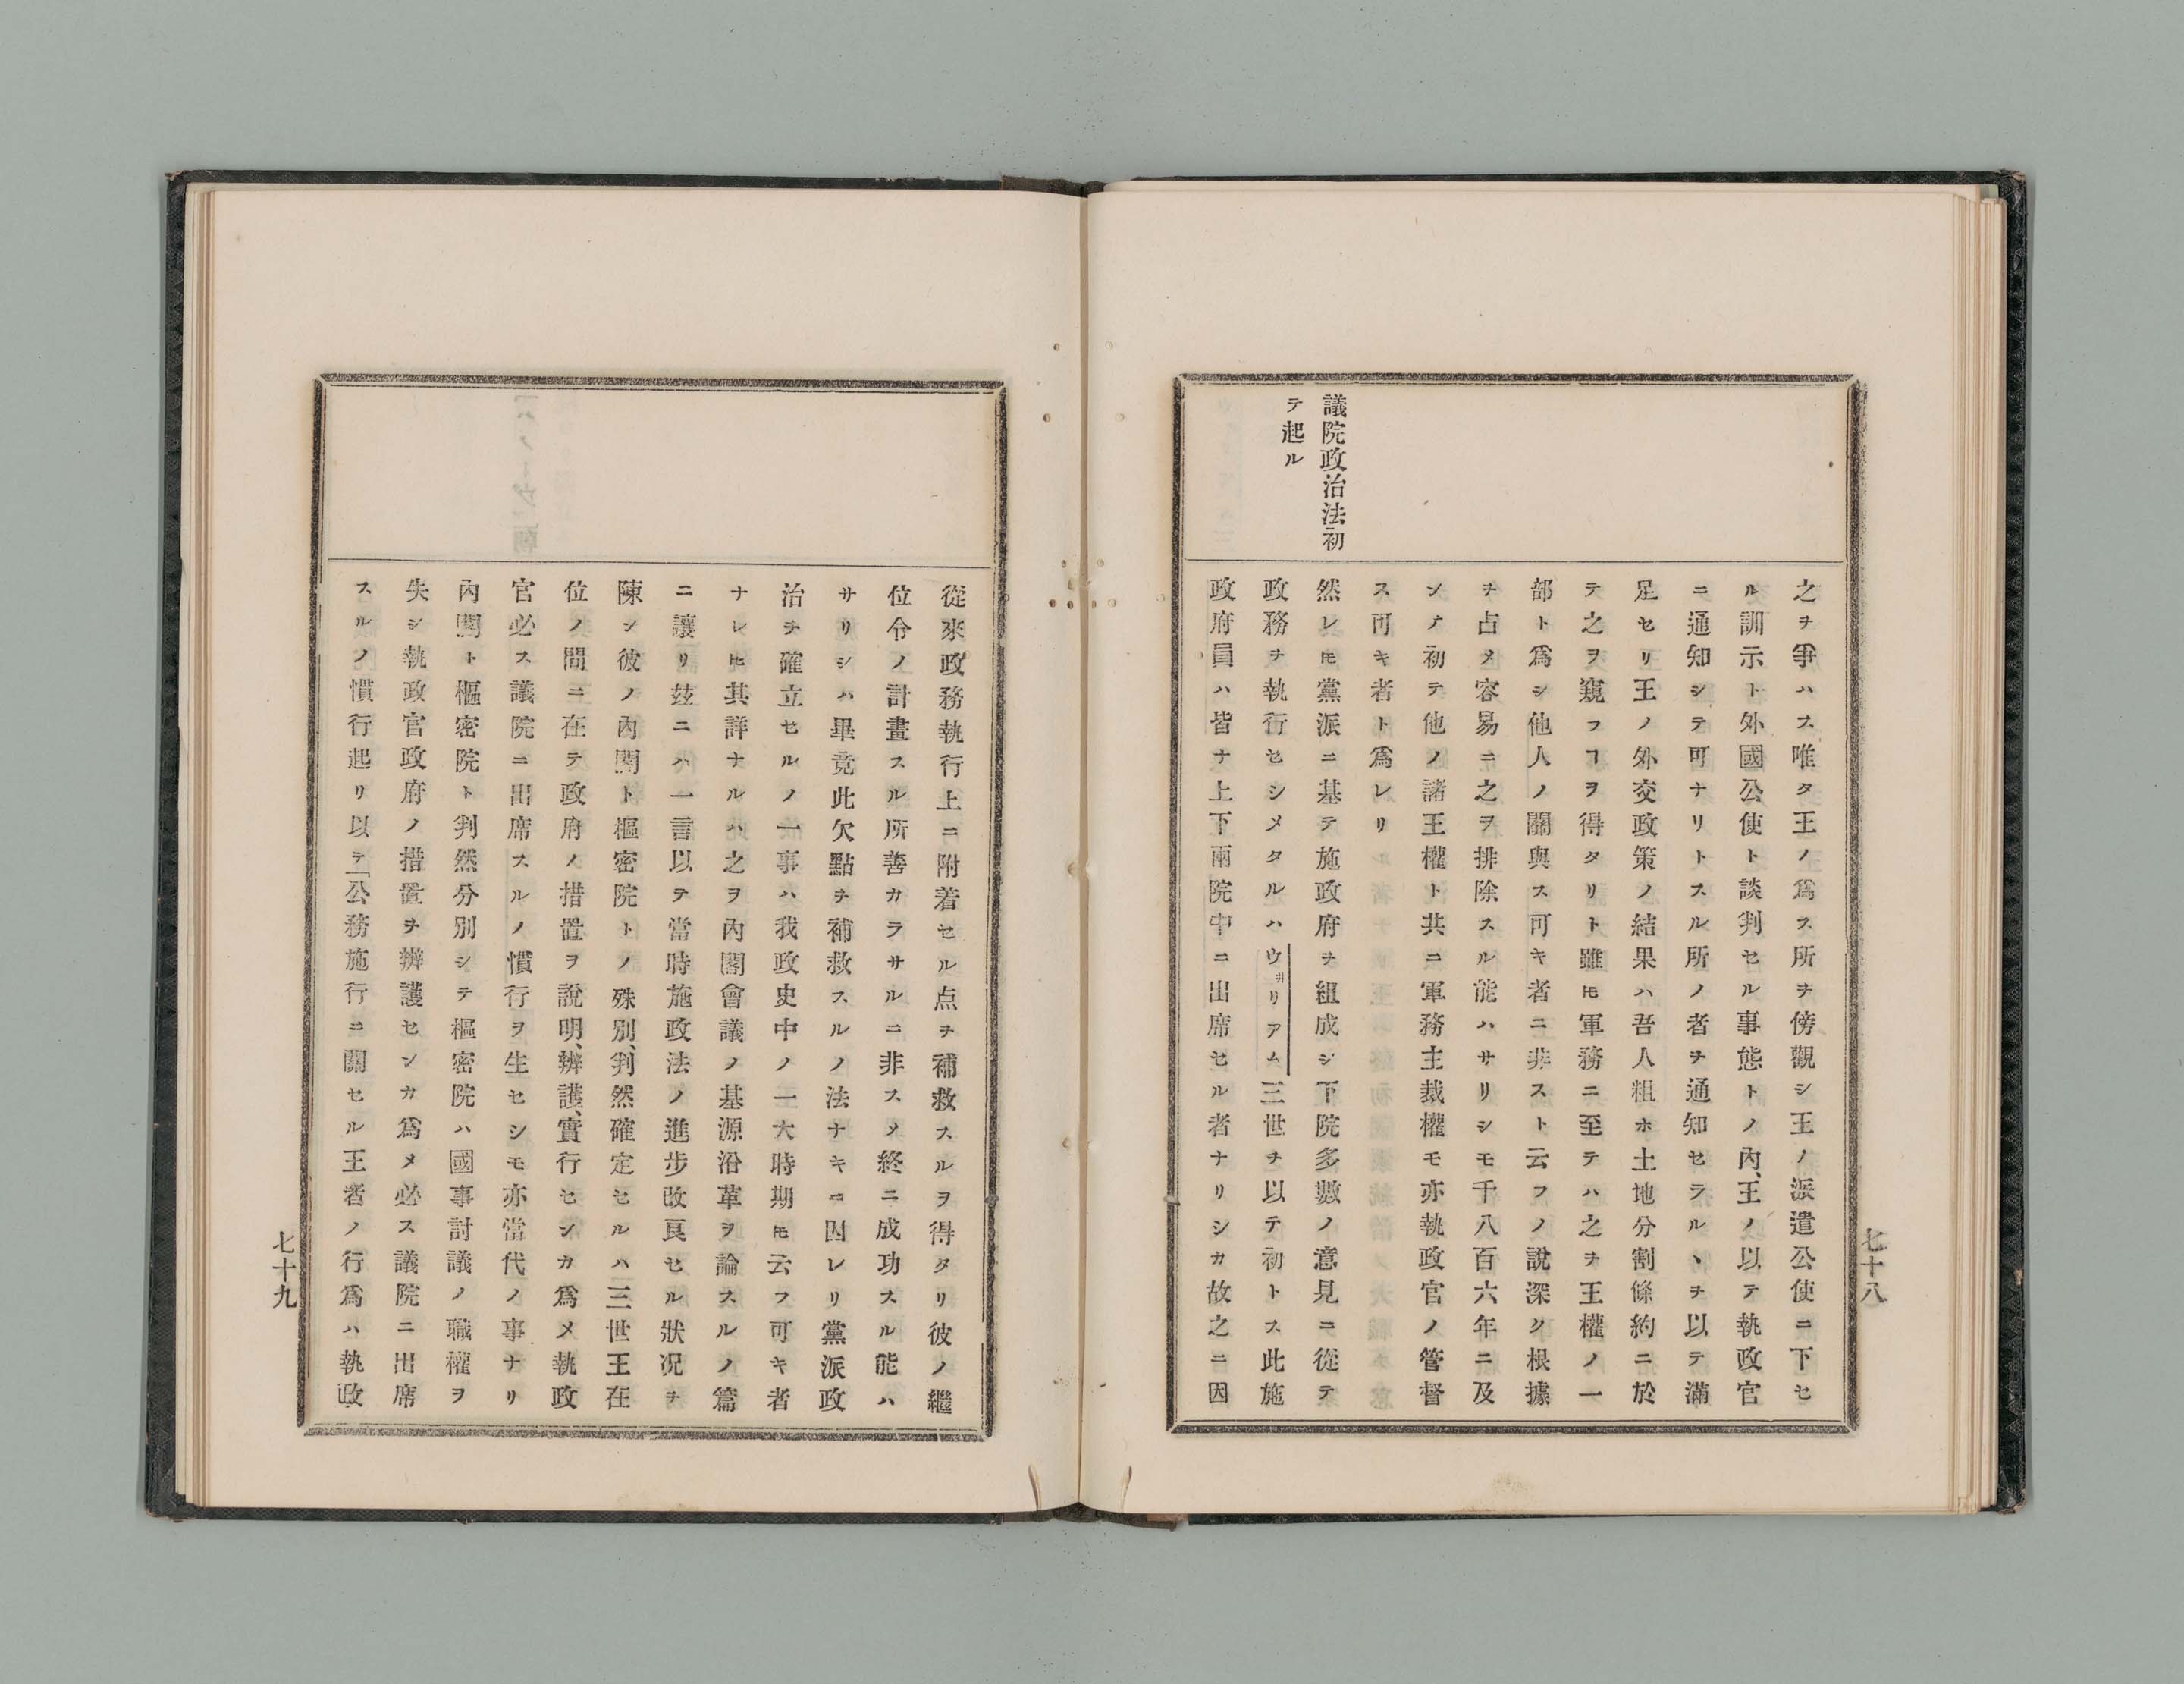 七十八
議院政治法初
テ起ル
之ヲ爭ハス唯タ王ノ爲ス所ヲ傍觀シ王ノ派遣公使ニ下セ
ル訓示ト外國公使ト談判セル事態トノ內、王ノ以テ執政官
ニ通知シテ可ナリトスル所ノ者ヲ通知セラルヽヲ以テ滿
足セリ王ノ外交政策ノ結果ハ吾人粗ホ土地分割條約ニ於
テ之ヲ窺フヿヲ得タリト雖𪜈軍務ニ至テハ之ヲ王權ノ一
部ト爲シ他人ノ關與ス可キ者ニ非スト云フノ說深ク根據
ヲ占メ容易ニ之ヲ排除スル能ハサリシモ千八百六年ニ及
ンテ初テ他ノ諸王權ト共ニ軍務主裁權モ亦執政官ノ管督
ス可キ者ト爲レリ
然レ𪜈黨派ニ基テ施政府ヲ組成シ下院多數ノ意見ニ從テ
政務ヲ執行セシメタルハウ井リアム三世ヲ以テ初トス此施
政府員ハ皆ナ上下兩院中ニ出席セル者ナリシカ故之ニ因
從來政務執行上ニ附着セル点ヲ補救スルヲ得タリ彼ノ繼
位令ノ計畫スル所善カラサルニ非スメ終ニ成功スル能ハ
サリシハ畢竟此欠點ヲ補救スルノ法ナキニ因レリ黨派政
治ヲ確立セルノ一事ハ我政史中ノ一大時期𪜈云フ可キ者
ナレ𪜈其詳ナルハ之ヲ內閣會議ノ基源沿革ヲ論スルノ篇
ニ讓リ玆ニハ一言以テ當時施政法ノ進步改良セル狀况ヲ
陳シ彼ノ內閣ト樞密院トノ殊別、判然確定セルハ三世王在
位ノ間ニ在テ政府ノ措置ヲ說明、辨護、實行センカ爲メ執政
官必ス議院ニ出席スルノ慣行ヲ生セシモ亦當代ノ事ナリ
內閣ト樞密院ト判然分別シテ樞密院ハ國事討議ノ職權ヲ
失シ執政官政府ノ措置ヲ辨護センカ爲メ必ス議院ニ出席
スルノ慣行起リ以テ「公務施行ニ關セル王者ノ行爲ハ執政
七十九